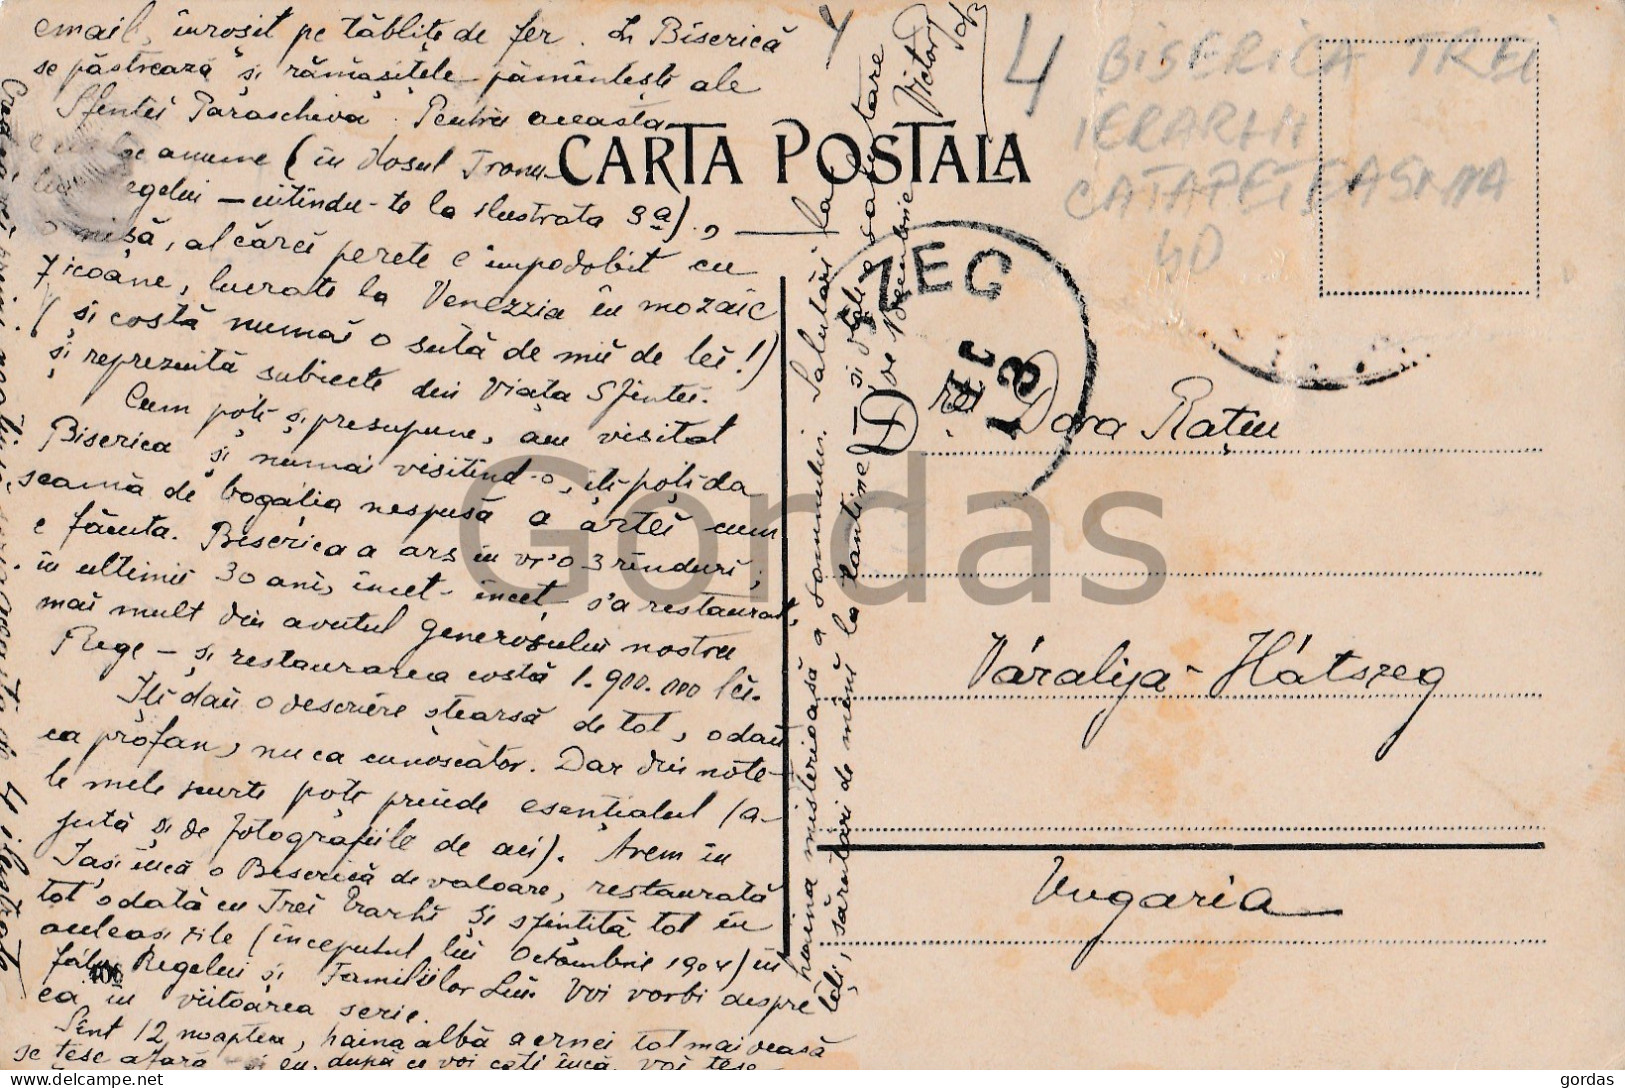 email, înroșit pe tăblițe de fer. În Biserică
se păstrează și rămășițele pămîntești ale
Sfintei Paraschiva. Pentru aceasta
e anume (în dosul Tronu-
lui Regelui – uitîndu-te la ilustrata 3a).,
o nișă, al cărei perete e împodobit cu
7 icoane, lucrate la Venezzia în mozaic
(și costă numai o sută de mii de lei!)
și reprezintă subiecte din Viața Sfintei.
Cum poți și presupune, am visitat
Biserica și numai visitînd-o, îți poți da
seamă de bogăția nespusă a artei cum
e făcuta. Biserica a ars în vr'o 3 rînduri;
în ultimii 30 ani, încet-încet s'a restaurat,
mai mult din avutul generosului nostru
Rege – și restaurarea costă 1.900.000 lei.
Iți dau o descriere ștearsă de tot, o dau
ca profan, nu ca cunoscător. Dar din note-
le mele scurte poți prinde esențialul (a-
jută și de fotografiile de aci). Avem în
Iași încă o Biserică de valoare, restaurată
tot odată cu Trei Erarhi și sfințită tot în
aceleași zile (începutul lui Octombrie 1904) în
fața Regelui și Familiilor Lui. Voi vorbi despre
ea în viitoarea serie.
Sînt 12 noaptea, haina albă a ernei tot mai deasă
se țese afară – și eu, după ce voi ceti încă, voi țese
haina misterioasă a somnului. Salutări la
toți, sărutări de mîni la tantine și dție o sărutare
Victor
406
4
4
BISERICA TREI
IERARHI
CATAPETEASMA
40
CARTA POSTALA
ZEG
DEC
13
D-rei Dora Rațiu
Váralija-Hátszeg
Ungaria
Gordas
gordas